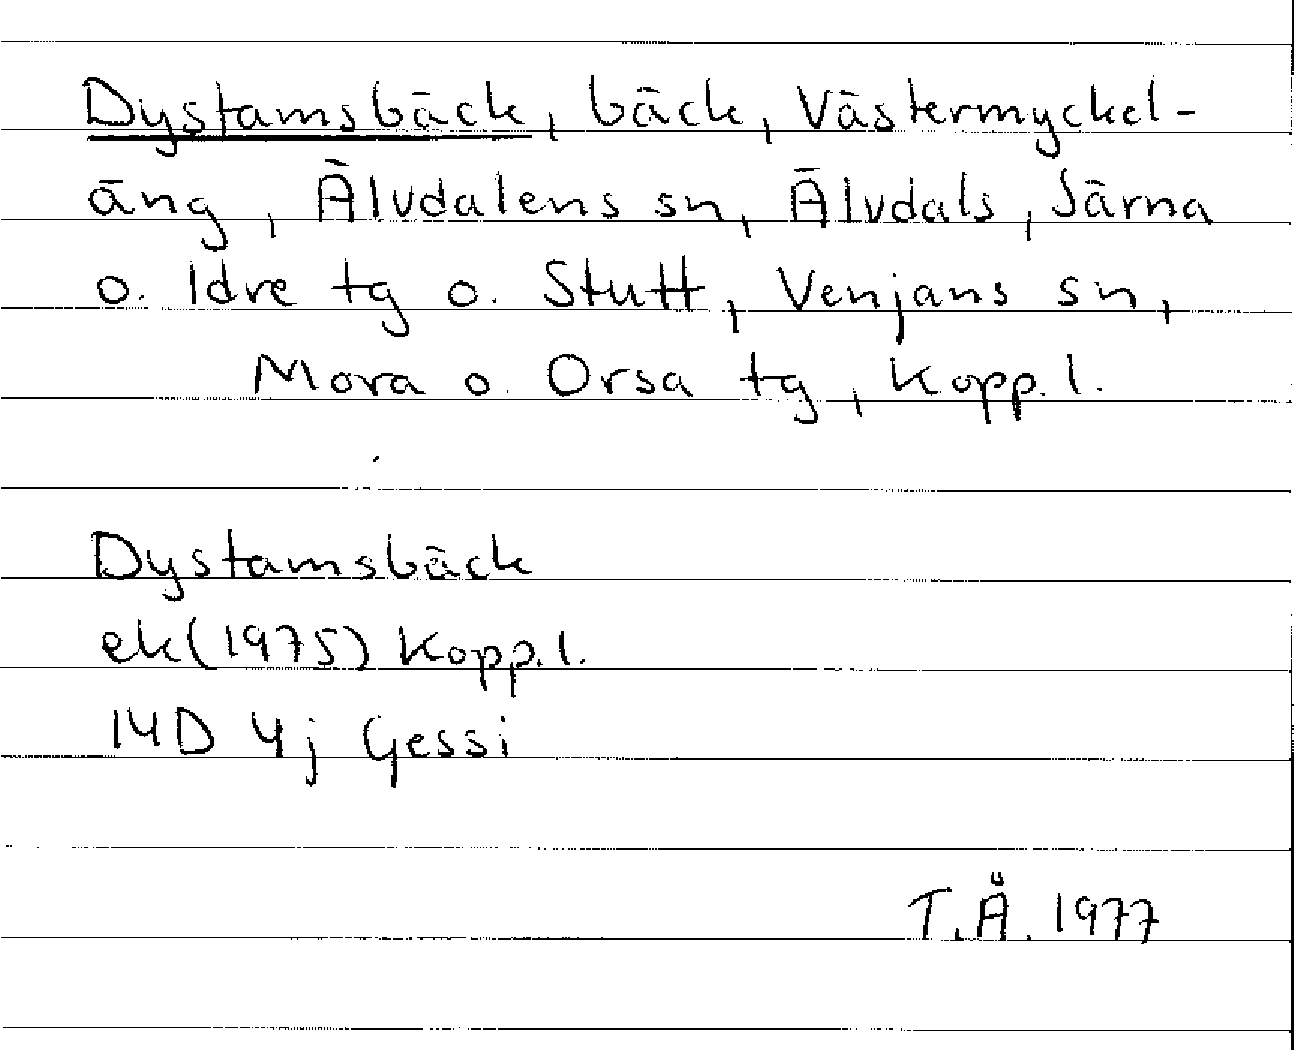 Dystamsbäck, bäck, Västermyckel-
äng, Älvdalens sn, Älvdals, Särna
o. Idre tg o. Stutt, Venjans sn,
Mora o. Orsa tg, Kopp.l.
Dystamsbäck
ek(1975) Kopp.l.
14D 4j Gessi
T.Å. 1977